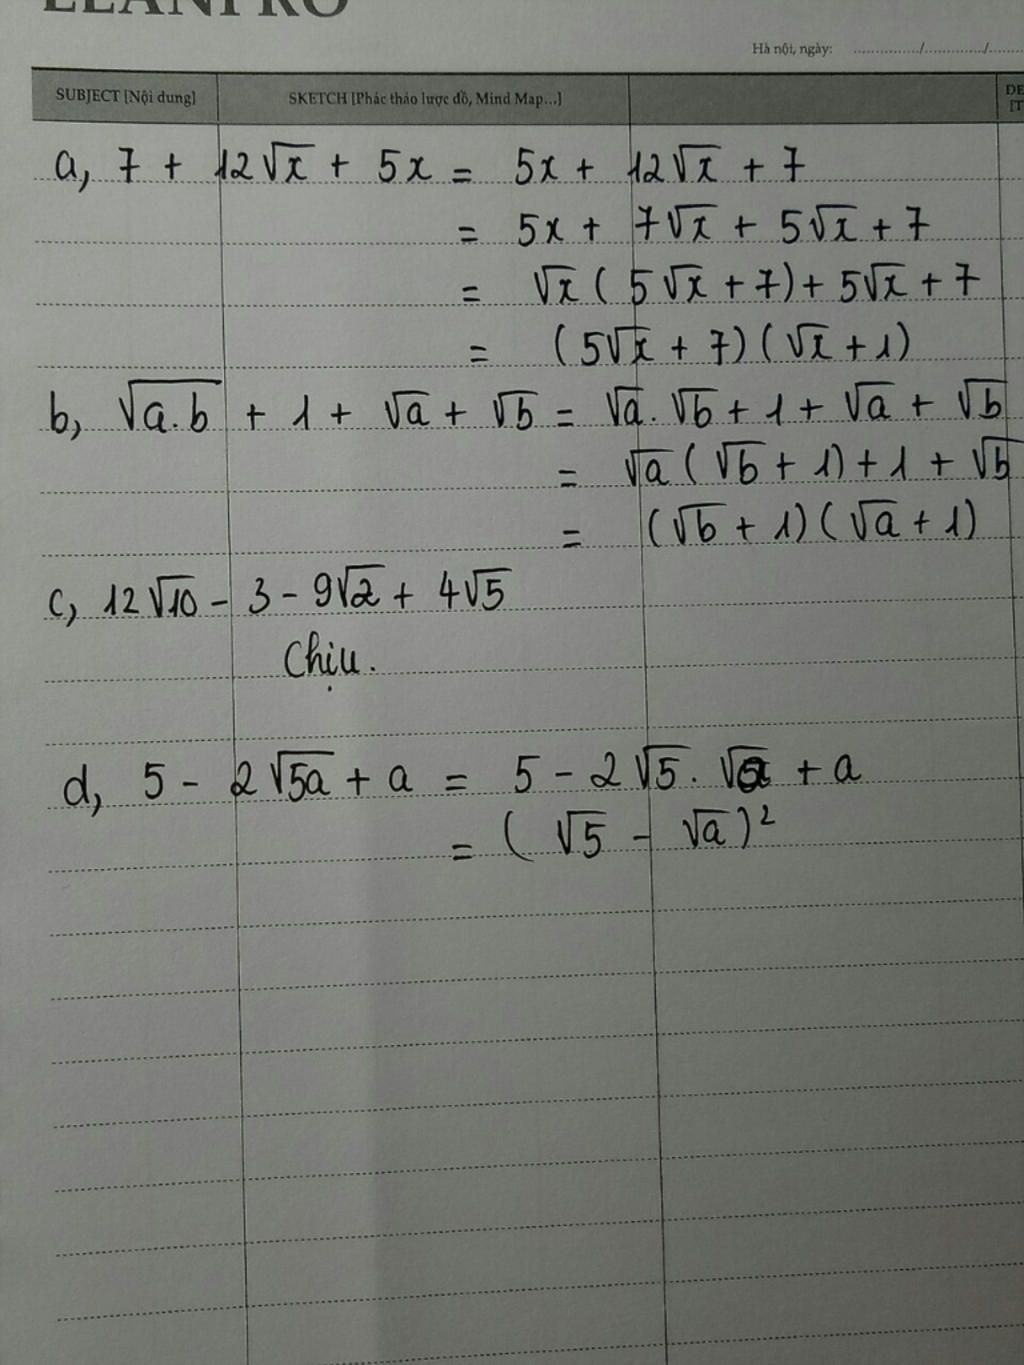 LEANPRO
Hà nội, ngày: ............../............../......
SUBJECT [Nội dung] SKETCH [Phác thảo lược đồ, Mind Map...]
a, 7 + 12√x + 5x = 5x + 12√x + 7
= 5x + 7√x + 5√x + 7
= √x ( 5√x + 7) + 5√x + 7
= (5√x + 7)(√x + 1)
b, √(a.b) + 1 + √a + √b = √a . √b + 1 + √a + √b
= √a (√b + 1) + 1 + √b
= (√b + 1)(√a + 1)
c, 12√10 - 3 - 9√2 + 4√5
Chịu.
d, 5 - 2√(5a) + a = 5 - 2√5 . √a + a
= ( √5 - √a )²